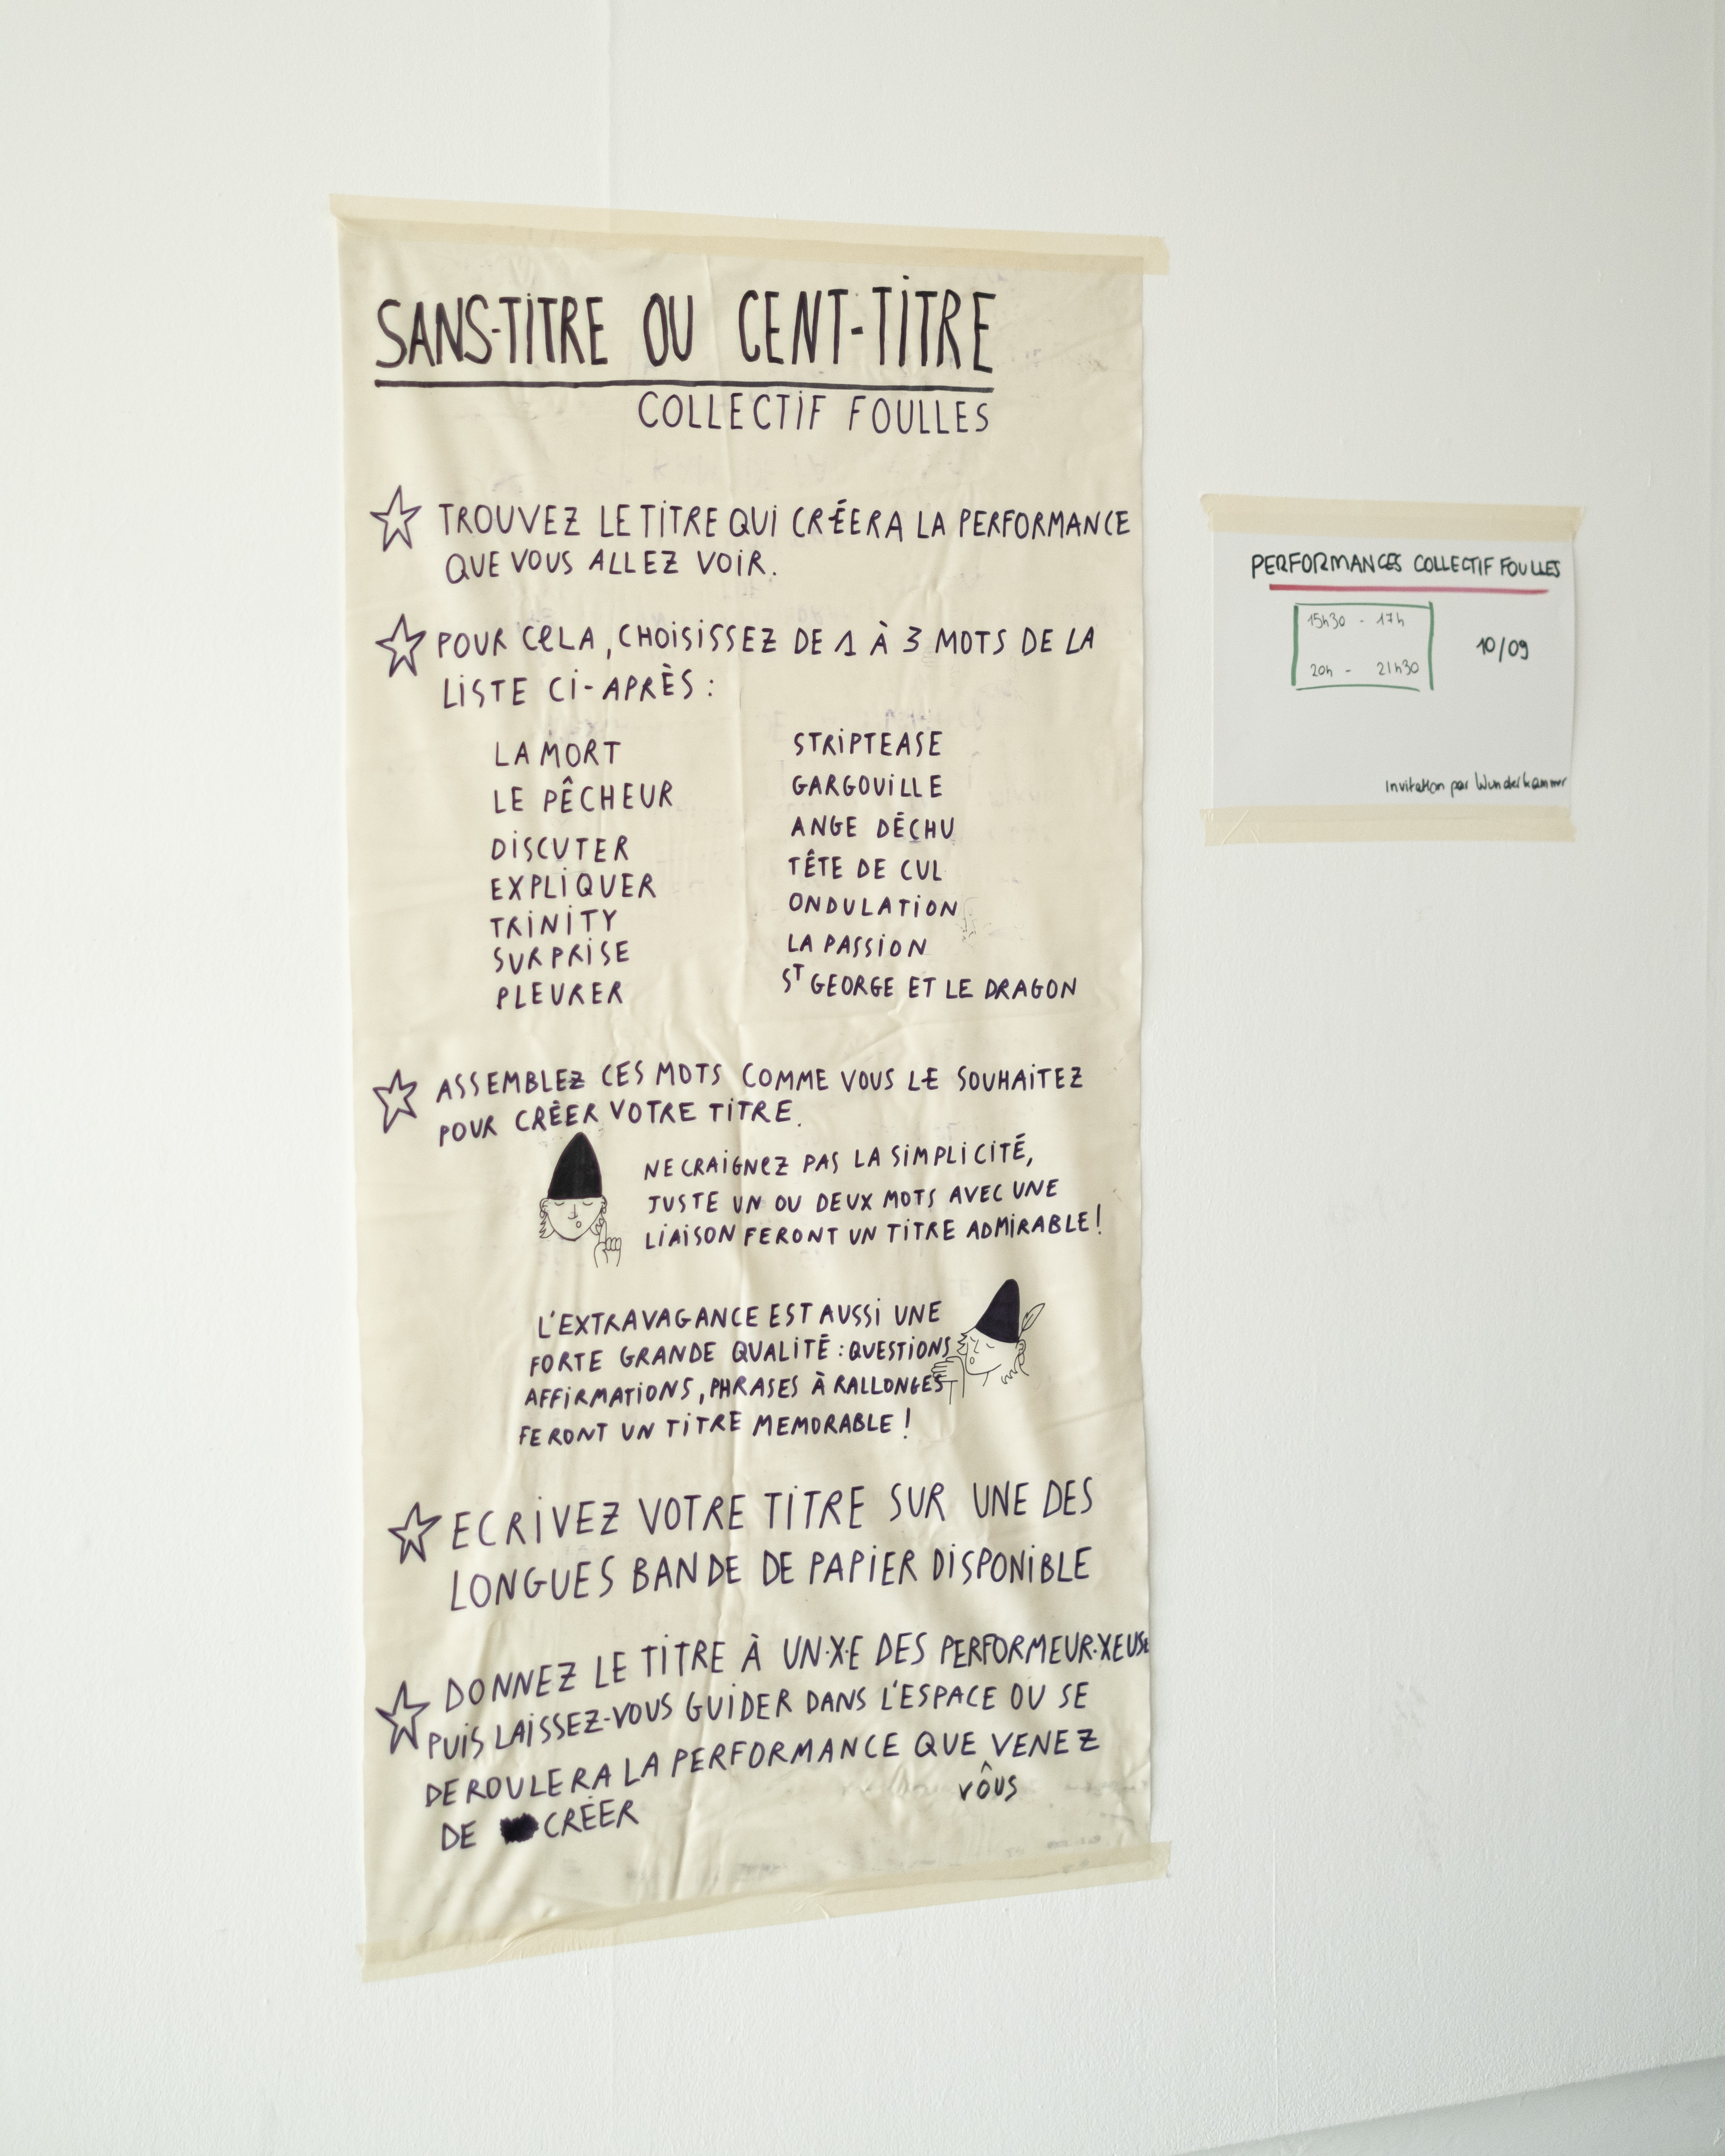 SANS-TITRE OU CENT-TITRE
COLLECTIF FOULLES
TROUVEZ LE TITRE QUI CRÉERA LA PERFORMANCE
QUE VOUS ALLEZ VOIR.
POUR CELA, CHOISISSEZ DE 1 À 3 MOTS DE LA
LISTE CI-APRÈS :
LA MORT
LE PÊCHEUR
DISCUTER
EXPLIQUER
TRINITY
SURPRISE
PLEURER
STRIPTEASE
GARGOUILLE
ANGE DÉCHU
TÊTE DE CUL
ONDULATION
LA PASSION
ST GEORGE ET LE DRAGON
ASSEMBLEZ CES MOTS COMME VOUS LE SOUHAITEZ
POUR CRÉER VOTRE TITRE.
NE CRAIGNEZ PAS LA SIMPLICITÉ,
JUSTE UN OU DEUX MOTS AVEC UNE
LIAISON FERONT UN TITRE ADMIRABLE !
L'EXTRAVAGANCE EST AUSSI UNE
FORTE GRANDE QUALITÉ : QUESTIONS
AFFIRMATIONS, PHRASES À RALLONGES
FERONT UN TITRE MEMORABLE !
ECRIVEZ VOTRE TITRE SUR UNE DES
LONGUES BANDE DE PAPIER DISPONIBLE
DONNEZ LE TITRE À UN·X·E DES PERFORMEUR·XEUSE
PUIS LAISSEZ-VOUS GUIDER DANS L'ESPACE OU SE
DEROULERA LA PERFORMANCE QUE VENEZ
VOUS
DE CRÉER
PERFORMANCES COLLECTIF FOULLES
15h30 - 17h
20h - 21h30
10/09
Invitation par Wunderkammer